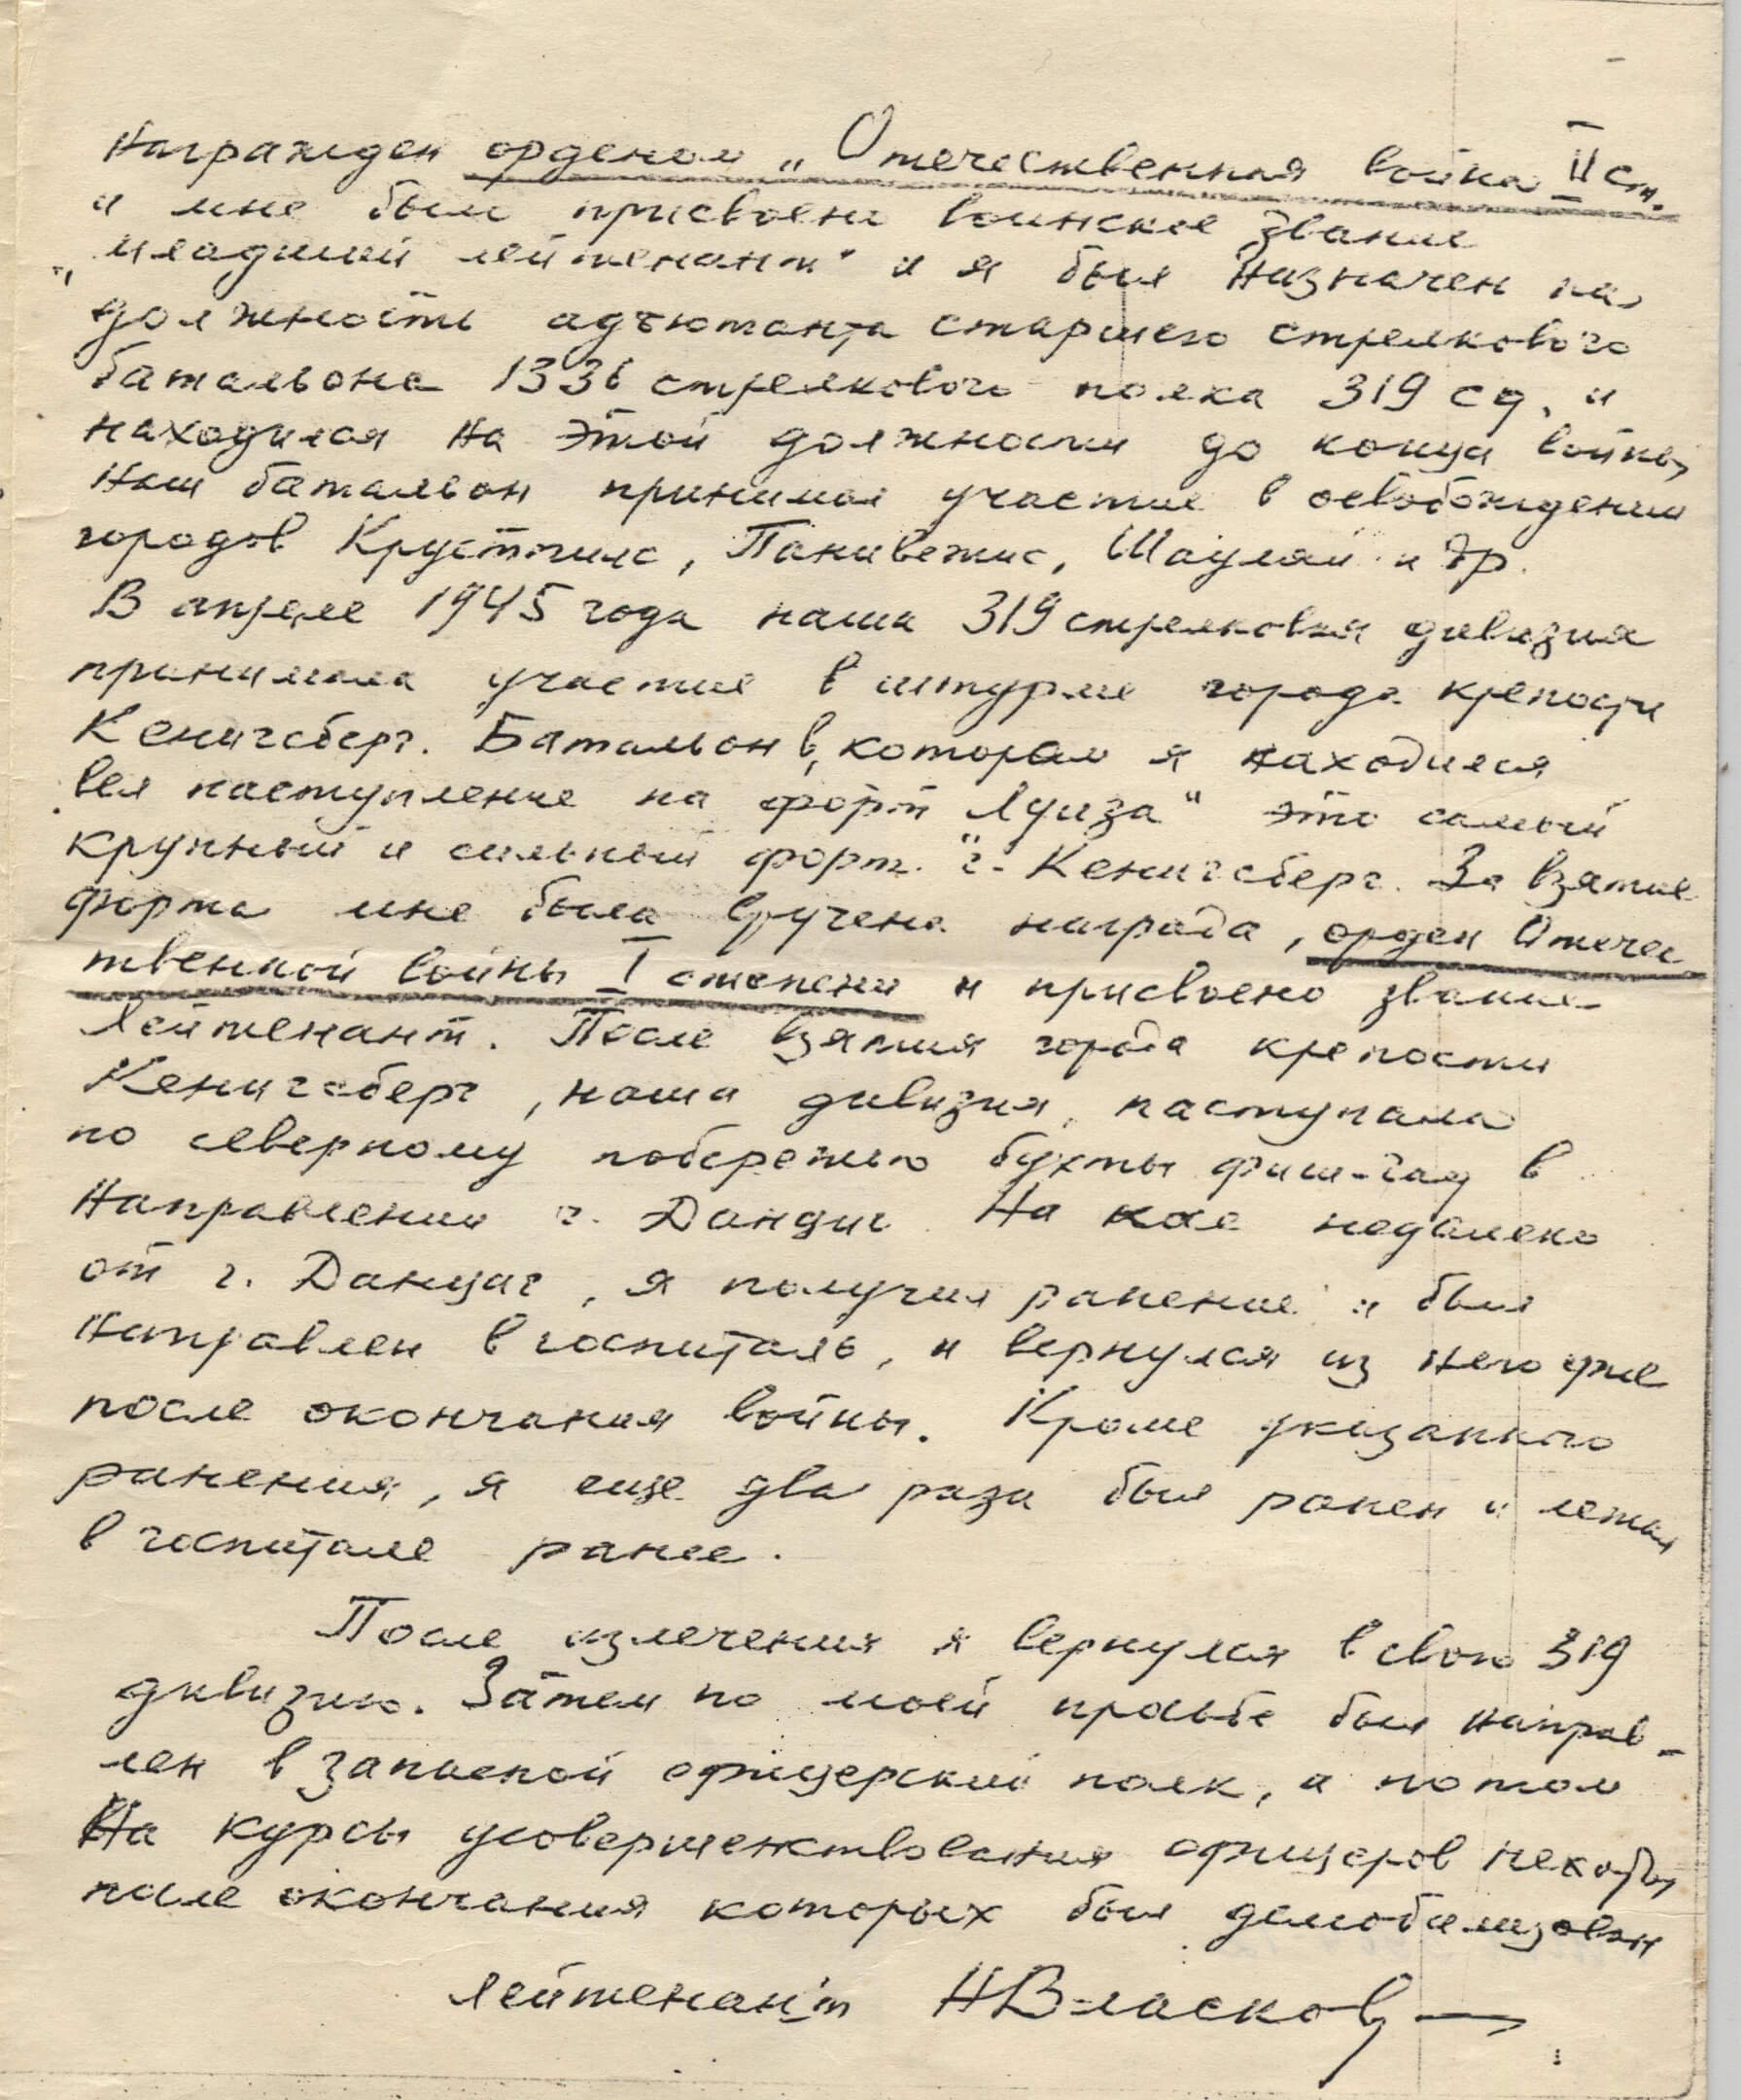 награжден орденом „Отечественная война II ст.
и мне было присвоено воинское звание
„младший лейтенант" и я был назначен на
должность адъютанта старшего стрелкового
батальона 1336 стрелкового полка 319 сд. и
находился на этой должности до конца войны,
Наш батальон принимал участие в освобождении
городов Крустпилс, Паневежис, Шауляй и др.
В апреле 1945 года наша 319 стрелковая дивизия
принимала участие в штурме города крепости
Кенигсберг. Батальон в, котором я находился
вел наступление на форт „Луиза" это самый
крупный и сильный форт. г. Кенигсберг. За взятие
форта мне была вручена награда, орден Отечес
твенной войны I степени и присвоено звание
Лейтенант. После взятия города крепости
Кенигсберг, наша дивизия, наступала
по северному побережью бухты фиш-гаф в
направлении г. Данциг. На косе недалеко
от г. Данциг, я получил ранение и был
направлен в госпиталь, и вернулся из него уже
после окончания войны. Кроме указанного
ранения, я еще два раза был ранен и лежал
в госпитале ранее.
После излечения я вернулся в свою 319
дивизию. Затем по моей просьбе был направ-
лен в запасной офицерский полк, а потом
На курсы усовершенствования офицеров пехоты,
после окончания которых был демобилизован
Лейтенант НВласков